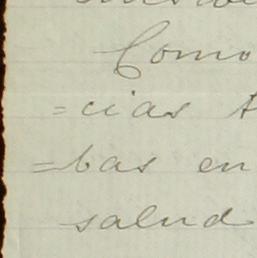 Como
=cias
=bas en
salud